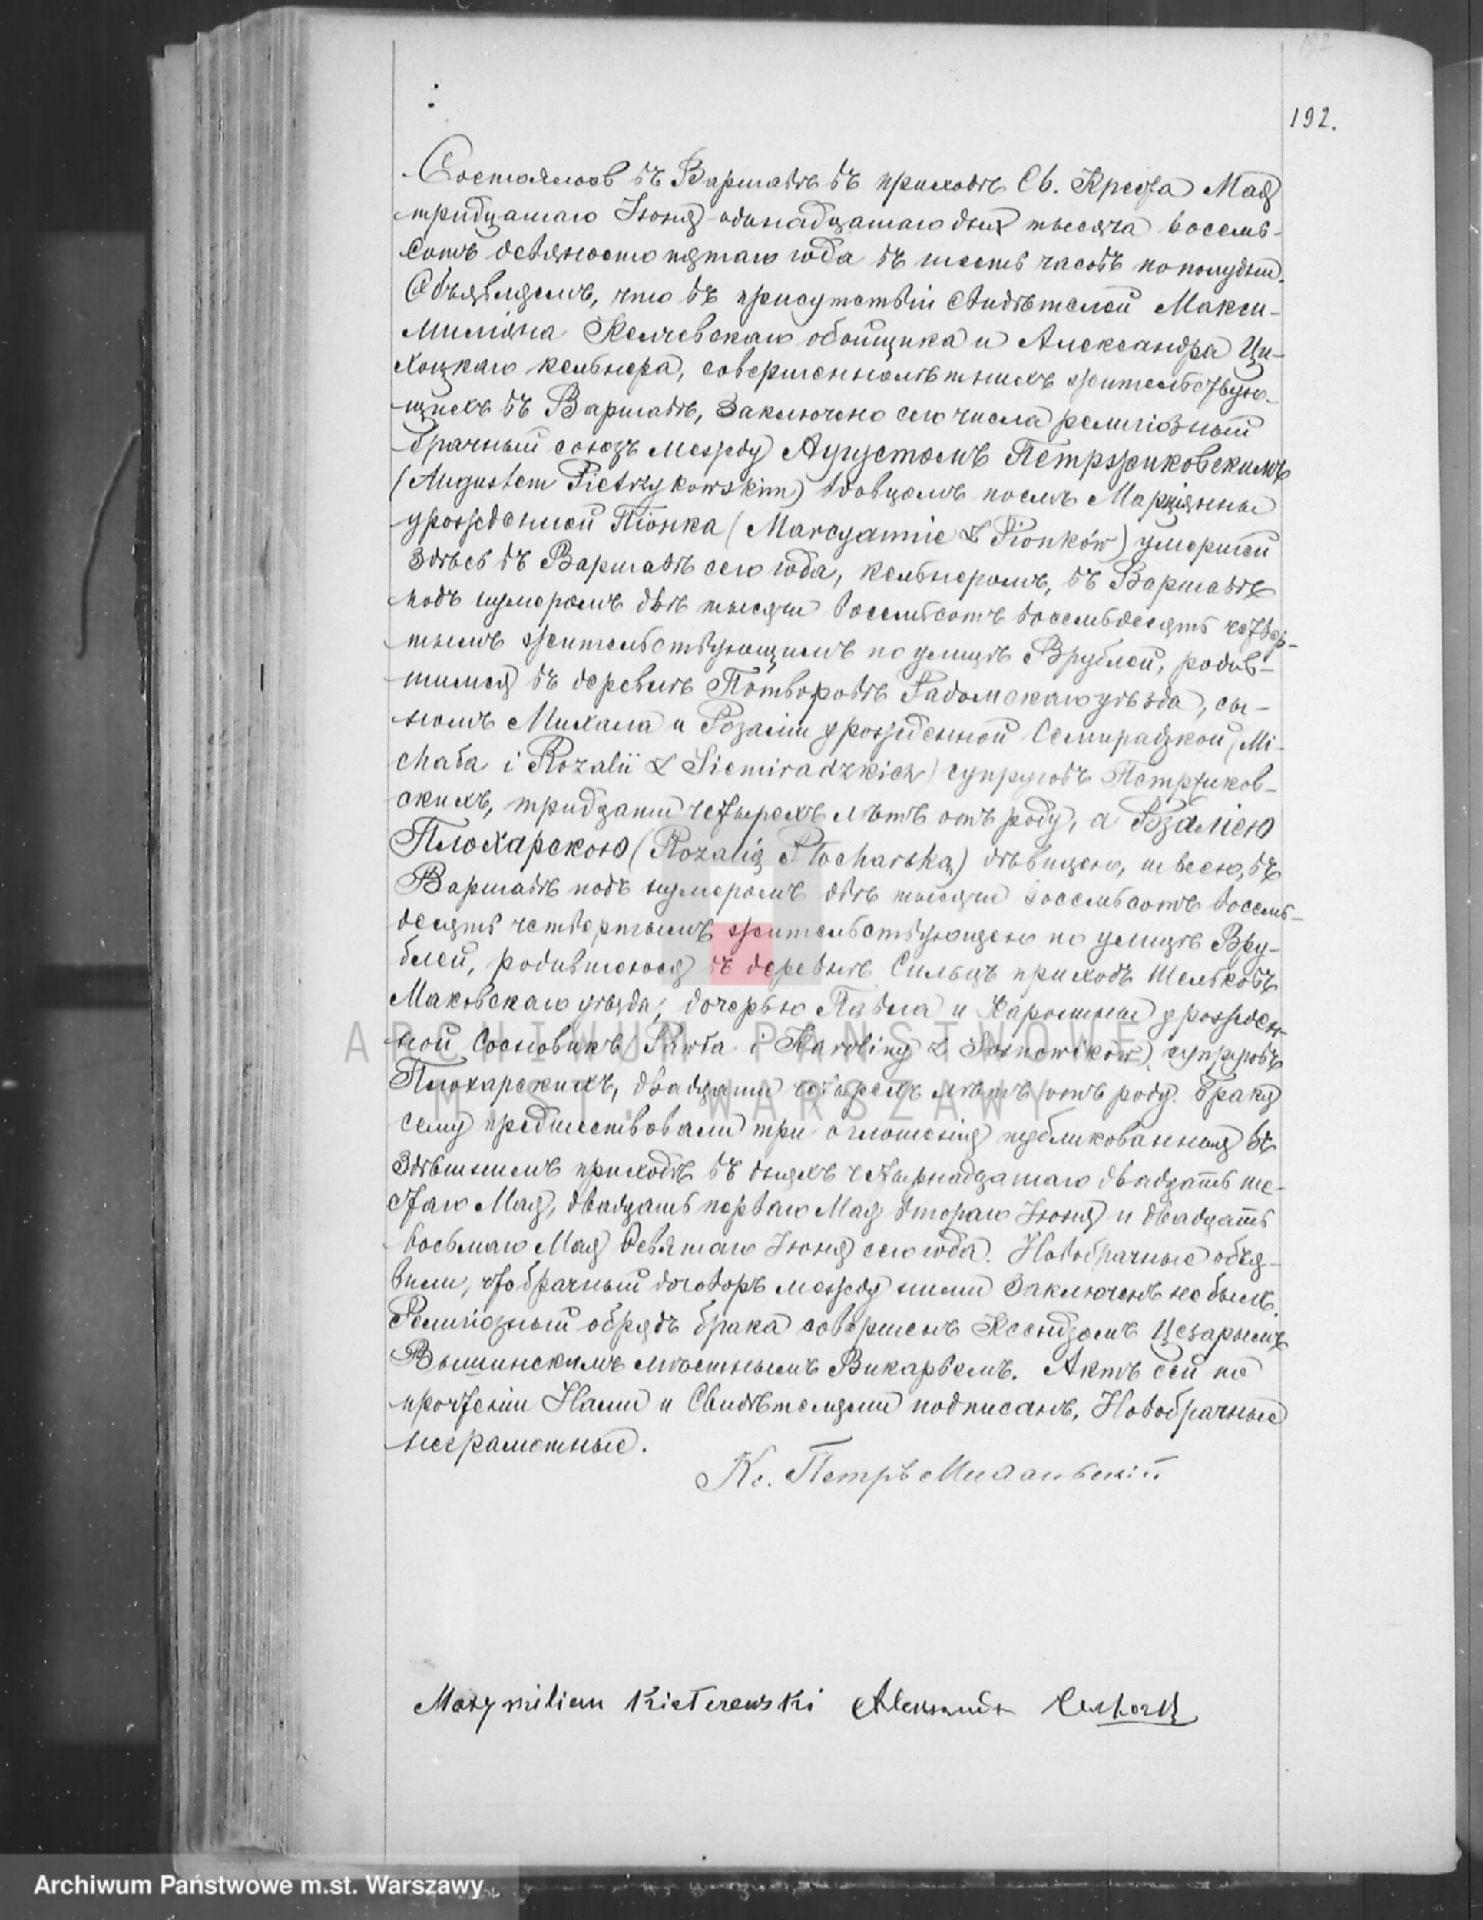 192.
Состоялось въ Варшавѣ въ приходѣ Св. Креста Мая
тридцатаго Іюня одинадцатаго дня тысяча восемь-
сотъ девяносто пятаго года въ шесть часовъ пополудни.
Объявляемъ, что въ присутствіи свидѣтелей Макси-
миліяна Келчевскаго обойщика и Александра Ци-
хоцкаго кельнера, совершеннолѣтнихъ жительствую-
щихъ въ Варшавѣ, заключено сего числа религіозный
брачный союзъ между Аугустомъ Петржиковскимъ
(Augustem Pietrzykowskim) вдовцомъ послѣ Марціянны
урожденной Піонка (Marcyannie z Pionków) умершей
здѣсь въ Варшавѣ сего года, кельнеромъ, въ Варшавѣ
подъ нумеромъ двѣ тысячи восемьсотъ восемьдесятъ четвер-
тымъ жительствующимъ по улицѣ Врублей, родив-
шимся въ деревнѣ Потворовѣ Радомскаго уѣзда, сы-
номъ Михала и Розаліи урожденной Семирадзкой (Mi-
chała i Rozalii z Siemiradzkich) супруговъ Петржиков-
скихъ, тридцати четырехъ лѣтъ отъ роду, а Розаліею
Плохарскою (Rozalią Płocharską) дѣвицею, швеею, въ
Варшавѣ подъ нумеромъ двѣ тысячи восемьсотъ восемь-
десятъ четвертымъ жительствующею по улицѣ Вру-
блей, родившеюся въ деревнѣ Сильцъ приходъ Шельковъ
Маковскаго уѣзда, дочерью Павла и Каролины урожден-
ной Сосновикъ (Pawła i Karoliny z Sosnowików) супруговъ
Плохарскихъ, двадцати четырехъ лѣтъ отъ роду. Браку
сему предшествовали три оглашенія публикованныя въ
здѣшнемъ приходѣ въ дняхъ четырнадцатаго двадцать ше-
стаго Мая, двадцать перваго Мая втораго Іюня и двадцать
восьмаго Мая девятаго Іюня сего года. Новобрачные объя-
вили, что брачный договоръ между ними заключенъ не былъ.
Религіозный обрядъ брака совершенъ Ксендзомъ Цезарымъ
Вышинскимъ мѣстнымъ Викаріемъ. Актъ сей по
прочтеніи Нами и Свидѣтелями подписанъ, Новобрачные
неграмотные.
Кс. Петръ
Maxymilian Kiełczewski Aleksander
ARCHIWUM PAŃSTWOWE
M.ST. WARSZAWY
Archiwum Państwowe m.st. Warszawy